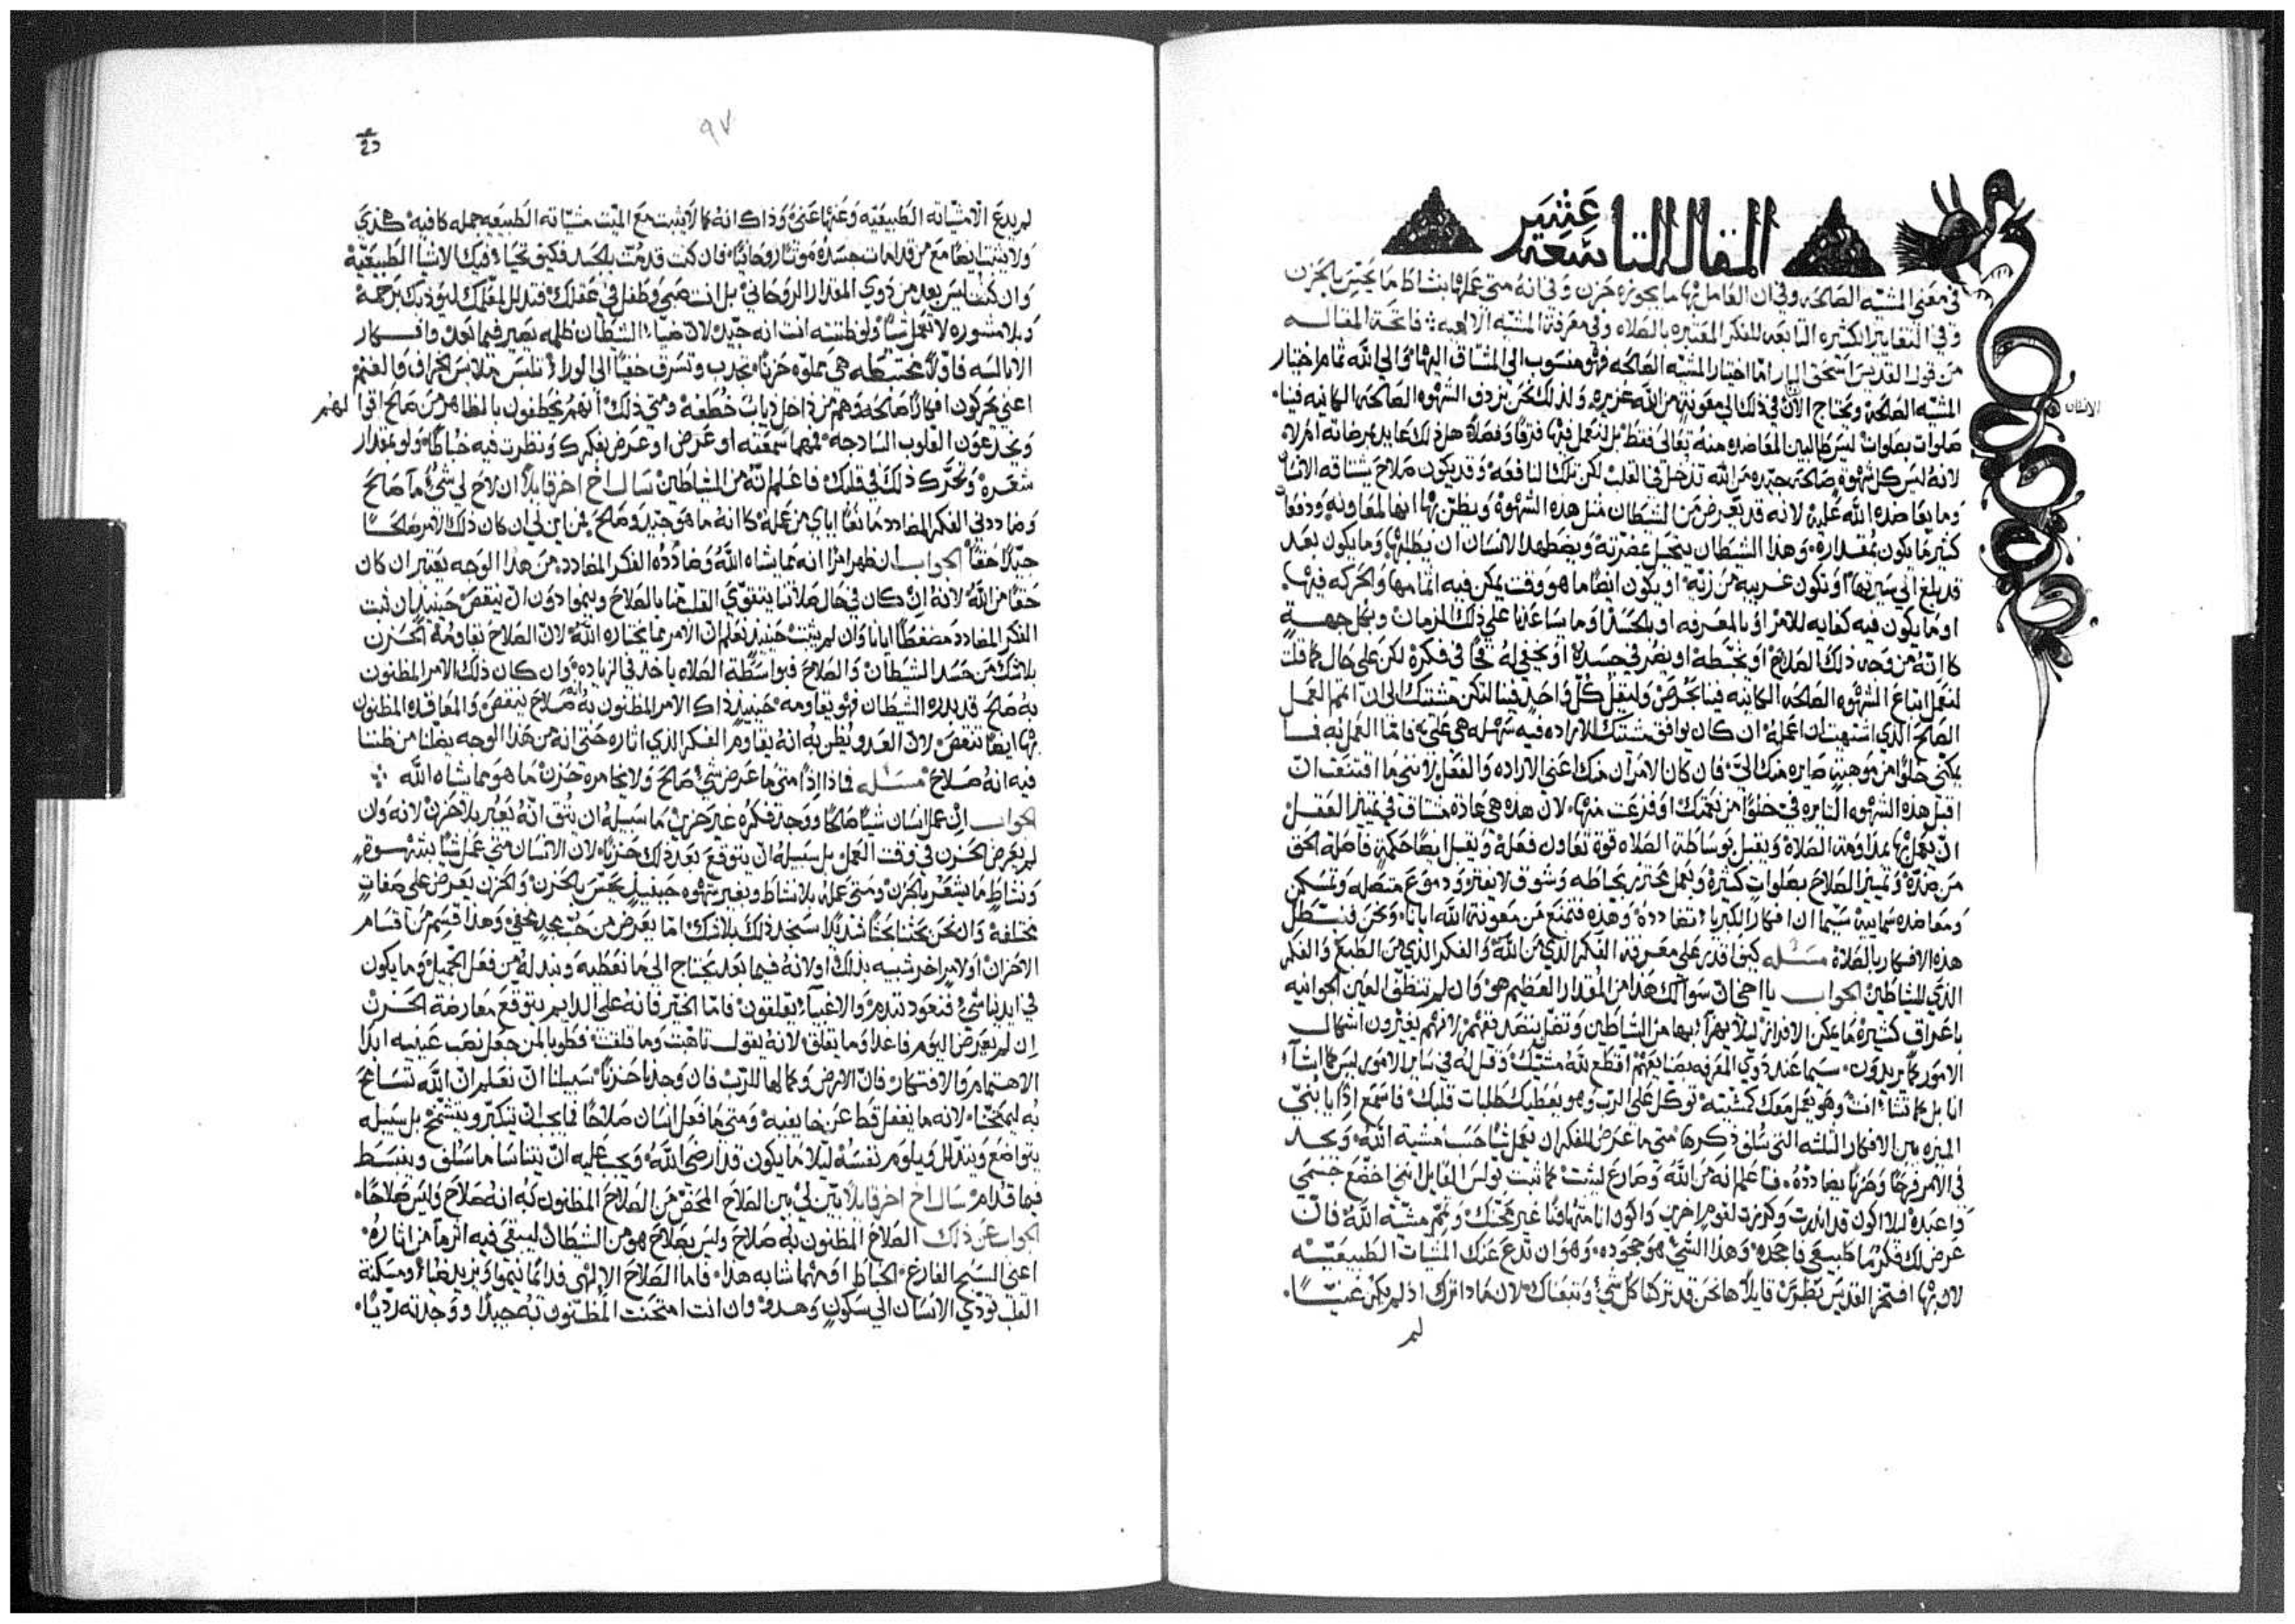 المقاله التاسعة عشر
في معني المشيه الصالحه وفي ان العامل بها ما يجوزه حزن وفي انه متي عملها بنشاط ما يحس بالحزن
وفي التغايير الكثيره التابعه للفكر المعتبره بالصلاه وفي معرفة المشيه الالاهيه فاتحة المقاله
من قول القديس اسحق البار امّا اختيار المشيه الصالحه فهو منسوب الي المشتاق اليها وٓالي الله تمام اختيار
المشيه الصالحة ويحتاج الان في ذلك الي معونة من الله غزيره ولذلك نحن نردف الشهوه الصالحه الكاينه فينا
الانسان
صلوات بصلوات ليس طالبين المعاضده منه تعالي فقط بل لنعمل فيها فرقًا وفصلاً هل ذلك عايد بمرضاته ام لا
لانه ليس كل شهوةٍ صالحه جيّده من الله تدخل في القلب لكن تلك النافعه وقد يكون صلاح يشتاقه الانسان
وما يعاضده الله عليه لانه قد يعرض من الشيطان مثل هذه الشهوة ويظنّ بها انها لمعاونةٍ ودفعًا
كثير ما يكون بمقداره وهذا الشيطان يتحيل مضرّته ويضطهد الانسان ان يطلبها وما يكون بعد
قد بلغ الي سيرتها او تكون غريبه من زيّه او يكون ايضًا ما هو وقت يمكن فيه اتمامها والحركه فيها
او ما يكون فيه كفايه للامر او بالمعرفه او بالجسد او ما ساعدنا علي ذلك الزمان وبكل جهةٍ
كا انّه من وجه ذلك الصلاح او يخبّطه او يضر في جسده او يخفي له فخًا في فكره لكن علي حال كما قلت
لنعمل اتباع الشهوه الصالحه الكاينه فينا بحرص وليقل كل واحدٍ فينا لتكن مشيتك الي ان اتمم العمل
الصالح الذي اشتهيت ان اعمله ان كان يوافق مشيتك الاراده فيه سهله هي عليّ فامّا العمل به فما
يمكني خلوًا من موهبةٍ صايره منك اليّ فان كان الامران منك اعني الاراده والفعل لانني ما اقتنعت انّ
اقبل هذه الشهوه الثايره في خلوًا من نعمتك او فزعت منها لان هذه هي عادة مشتاق في تمييز العقل
ان يعمل بها بمداومة الصلاة ويقبل بوساطة الصلاه قوة تعاون فعله ويقبل ايضًا حكمةٍ فاصلة الحق
من ضدّه وتمييز الصلاح بصلواتٍ كثيرة وبعمل محترز بتحفظه وشوق لا يفتر ودموع متصله وتمسكن
ومعاضده سمايية سيّما ان افكار الكبريا تضادده وهذه تمنع من معونة الله ايانا ونحن فنبطل
هذه الافكار بالصلاة مسئله كيف اقدر علي معرفة الفكر الذي من الله والفكر الذي من الطبع والفكر
الذي للشياطين الجواب يا اخي ان سوالك هذا من المقدار العظيم هو وان لم تتنظّف العين الجوانيه
باعراق كثيرة ما يمكن الافراز ليلا يهزأ بها من الشياطين وتضلّ بتصديقهم لانهم يغيّرون اشكال
الامور كما يريدون سيما عند ذوي المعرفه بصنايعهم اقطع لله مشيّتك وقل له في ساير الامور ليس كما اشآء
انا بل كما تشاء انت وهو يعمل معك كمشيته توكّل علي الرب وهو يعطيك طلبات قلبك فاسمع اذًا يا بُنيّ
الميزه بين الافكار الثلثه التي سلف ذكرها متي ما عرض للفكر ان تعمل شيًا حسب مشية الله وتجد
في الامر فرحًا وحزنًا يضادده فاعلم انه من الله وصارع لتثبت كما ثبت بولس القايل انني اخضع جسمي
واعبده ليلا اكون قد انذرت وكرزت لقومٍ اخرين واكون انا متهاونًا غير ممتحنًا وتمّم مشيّة الله فان
عرض لك فكر ما طبيعي فاجحده وهذا الشي هو جحوده وهو ان تدع عنك المشيات الطبيعيّه
لان بها افتخر القديس بطرس قايلاً ها نحن قد تركنا كل شي وتبعناك لان ماذا ترك اذ لم يكن غنيّا
لم
٩٧
لم يدع الا مشيّاته الطبيعيّه وعنها عني وذاك انه كما لا يثبت مع الميّت مشيّاته الطبيعيه جمله كافيه هكذي
ولا يثبت ايضًا مع من قد امات جسده موتًا روحانيًا فان كنت قد مُتّ بالجسد فكيف تحيا فيك الاشيا الطبيعيّة
وان كنت ليس بعد من ذوي المقدار الروحاني بل انت صبي وطفل في عقلك فتدلل لمعلمك ليودبك برحمة
وبلا مشوره لا تعمل شيًا ولو ظننته انت انه جيّد لان ضيا الشيطان ظلمه يصير فيما بعد وافكار
الابالسه فاوّلاً مختبطه هي مملوّه حزنًا تجدب وتسرق خفيًا الي الورا تلبس ملابس الخراف والغنم
اعني يحركون افكارًا صالحه وهم من داخل ذياب خطفه ومتي ذلك انهم يخطفون بالظاهر من صالح اقوالهم
ويخدعون القلوب السادجه فمهما سمعته او عرض او عرض بفكرك ونظرت فيه خباطًا ولو بمقدار
شعره وتحرّك ذلك في قلبك فاعلم انّه من الشياطين سال اخ اخر قايلاً ان لاح لي شيٌ ما صالح
وضاددني الفكر المضادد مانعًا اياي من عمله كا انه ما هو جيّد وصالح فمن اين لي ان كان ذلك الامر صالحًا
جيّدًا حقًا الجواب ان ظهر امرًا انه مما يشاه الله وضادده الفكر المضادد من هذا الوجه يعتبر ان كان
حقًا من الله لانه ان كان في حال صلاتنا يتقوّي القلب منا بالصلاح وينموا دون ان ينقص حينيذ ان ثبت
الفكر المضادد مضغطًا ايانا وان لم يثبت حينيذ نعلم ان الامر مما يختاره الله لان الصلاح يقاومه الحزن
بلا شك من حسد الشيطان والصلاح فبواسطة الصلاه ياخد في الزياده وان كان ذلك الامر المظنون
به صالح قد بدره الشيطان فهو يقاومه حينيذ ذاك الامر المظنون به انه صلاح ينقص والمعاقده المظنون
بها ايضًا تنقص لان العدو يُظن به انه يقاوم الفكر الذي اثاره حتي انه من هذا الوجه يضلّنا من ظننا
فيه انه صلاح مسئله فماذا اذًا متي ما عرض شي صالح ولا يخامره حزن ما هو مما يشاه الله
الجواب ان عمل انسان شيًا صالحًا ووجد فكره غير حزين ما سبيله ان يثق انّه يعبر بلا حزن لانه وان
لم يعرض الحزن في وقت العمل بل سبيله ان يتوقع بعد ذلك حزنًا لان الانسان متي عمل شيًا بشهوةٍ
ونشاطٍ ما يشعر بالحزن ومتي عمله بلا نشاط وبغير شهوه حينيذ يحسّ بالحزن والحزن يعرض علي صفاتٍ
مختلفة وان نحن بحثنا بحثًا شديدًا سنجد ذلك بلا شك امّا يعرض من حُبّ مجدٍ مخفي وهذا قسم من اقسام
الاحزان او لامر اخر شبيه بذلك او لانه فيما بعد يحتاج الي ما نعطيه ونبدله من فعل الجميل وما يكون
في ايدينا شي فنعود نندم والاغبياء يتعلقون فامّا الخيّر فانه علي الدايم يتوقع معارضة الحزن
ان لم يعرض اليوم فاغدا وما يقلق لانه يقول تاهبت وما قلقت فطوبا لمن جعل نصب عينيه ابدًا
الاهتمام والافتكار فانّ الارض وكمالها للرب فان وجدنا حزنًا سبيلنا انّ نعلم انّ الله تسامح
به ليمتحنّا لانه ما يغفل قط عن خايفيه ومتي ما فعل انسان صلاحًا فما يجب ان يتكبّر ويتشمّخ بل سبيله
يتواضع ويتدلل ويلوم نفسه ليلا ما يكون قد ارضي الله ويجب عليه انّ يتناسا ما سلف وينبسط
فيما قدام سال اخ اخر قايلاً بيّن لي بين الصلاح المحض من الصلاح المظنون به انه صلاح وليس صلاحًا
الجواب عن ذلك الصلاح المظنون به صلاح وليس بصلاح هو من الشيطان ليبقي فيه اثرمآ من اثاره
اعني السبح الفارغ الخباط او مهما شابه هذا فاما الصلاح الالهي فدايمًا ينموا ويزيد ضياء ومسكنة
القلب تودّي الانسان الي سكونٍ وهدوء وان انت امتحنت المظنون به جيدًا ووجدته رديًا